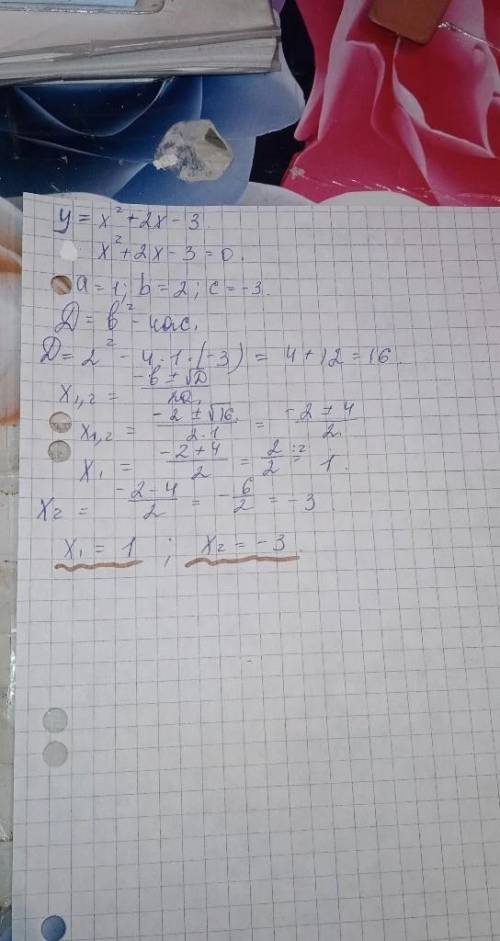 y = x² + 2x - 3.
x² + 2x - 3 = 0.
a = 1; b = 2; c = -3.
Д = b² - 4ac.
D = 2² - 4 · 1 · (-3) = 4 + 12 = 16.
x₁,₂ = (-b ± √D)/2a.
x₁,₂ = (-2 ± √16)/(2·1) = (-2 ± 4)/2
x₁ = (-2+4)/2 = 2/2 :2 = 1.
x₂ = (-2-4)/2 = -6/2 = -3
x₁ = 1 ; x₂ = -3.